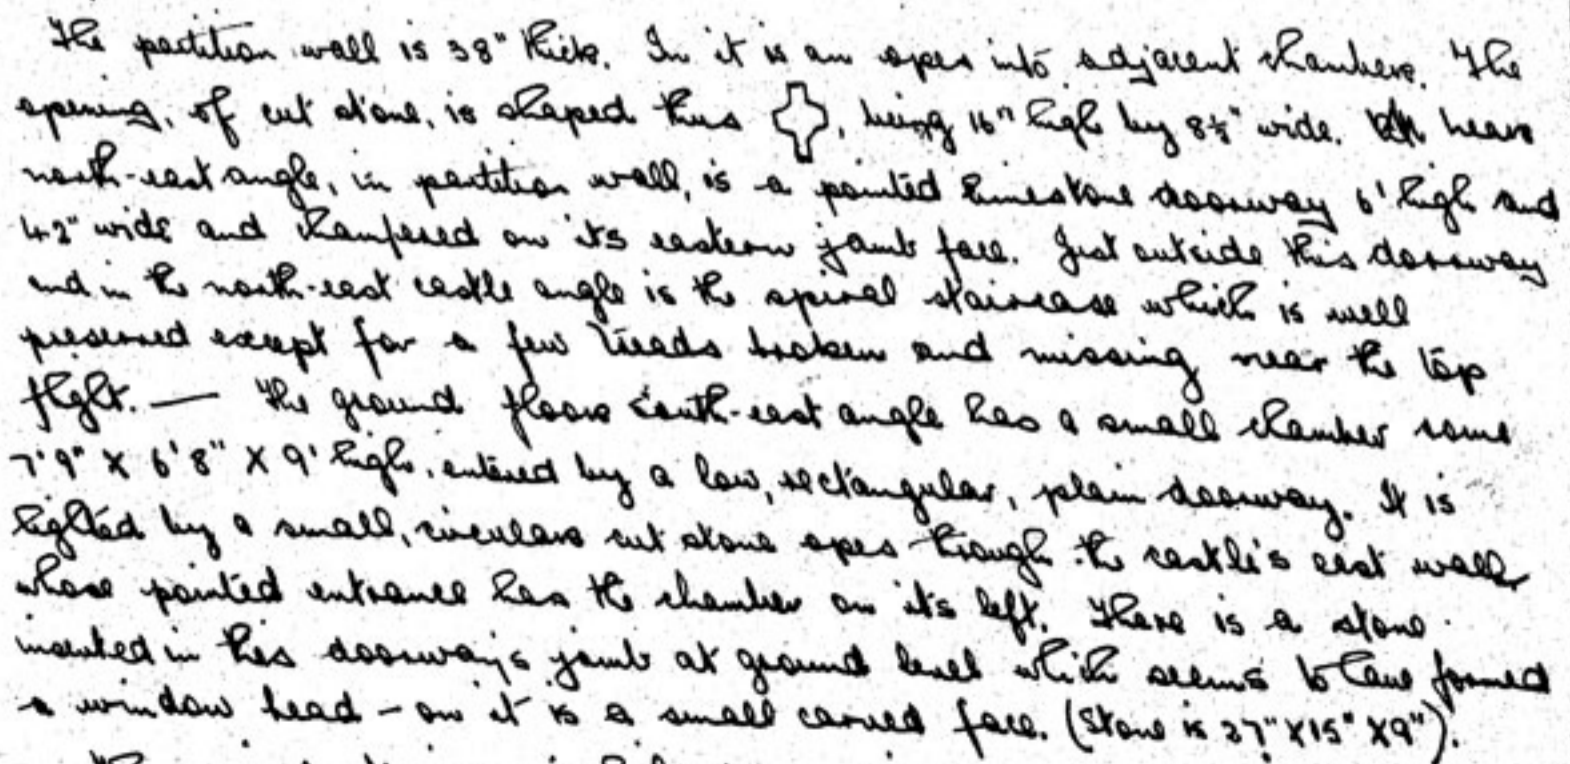 The partition wall is 38" thick. In it is an opes into adjacent chambers. The
opening, of cut stone, is shaped thus , being 16" high by 8½" wide. near
north-east angle, in partition wall, is a pointed limestone doorway 6' high and
42" wide and chamfered on its eastern jamb face. Just outside this doorway
and in the north-east castle angle is the spiral staircase which is well
preserved except for a few treads broken and missing near the top
flght. — The ground floors south-east angle has a small chamber some
7'9" X 6'8" X 9' high, entered by a low, rectangular, plain doorway. It is
lighted by a small, circular cut stone opes through the castle's east wall
whose pointed entrance has the chamber on its left. There is a stone
inserted in this doorway's jamb at ground level which seems to have formed
a window head - on it is a small carved face. (Stone is 27" X 15" X 9").